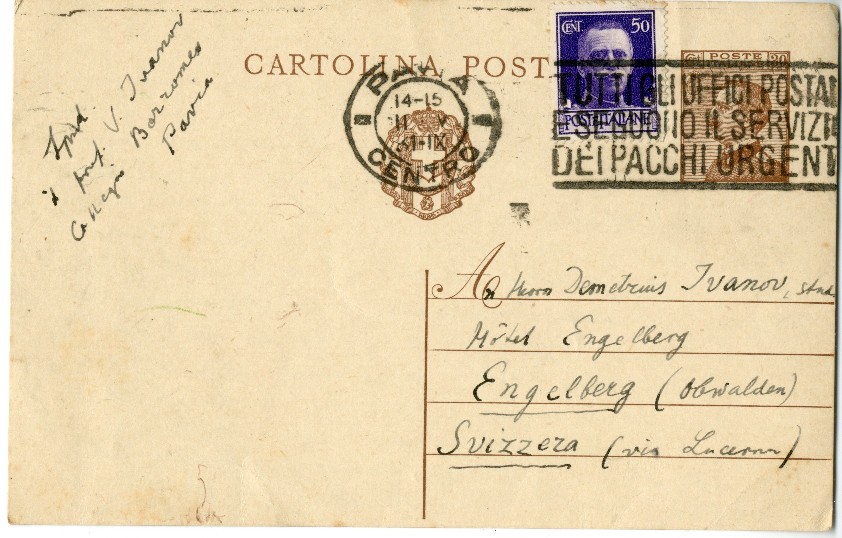 CARTOLINA POST
Sped.
il prof. V. Ivanov
Collegio Borromeo
Pavia
PAVIA
14-15
11 V
31-IX
CENTRO
CENT 50
POSTE ITALIANE
POSTE
TUTTI GLI UFFICI POSTAL
ESEGUONO IL SERVIZI
DEI PACCHI URGENT
An Herrn Demetrius Ivanov, stud.
Hôtel Engelberg
Engelberg (Obwalden)
Svizzera (via Lucerna)